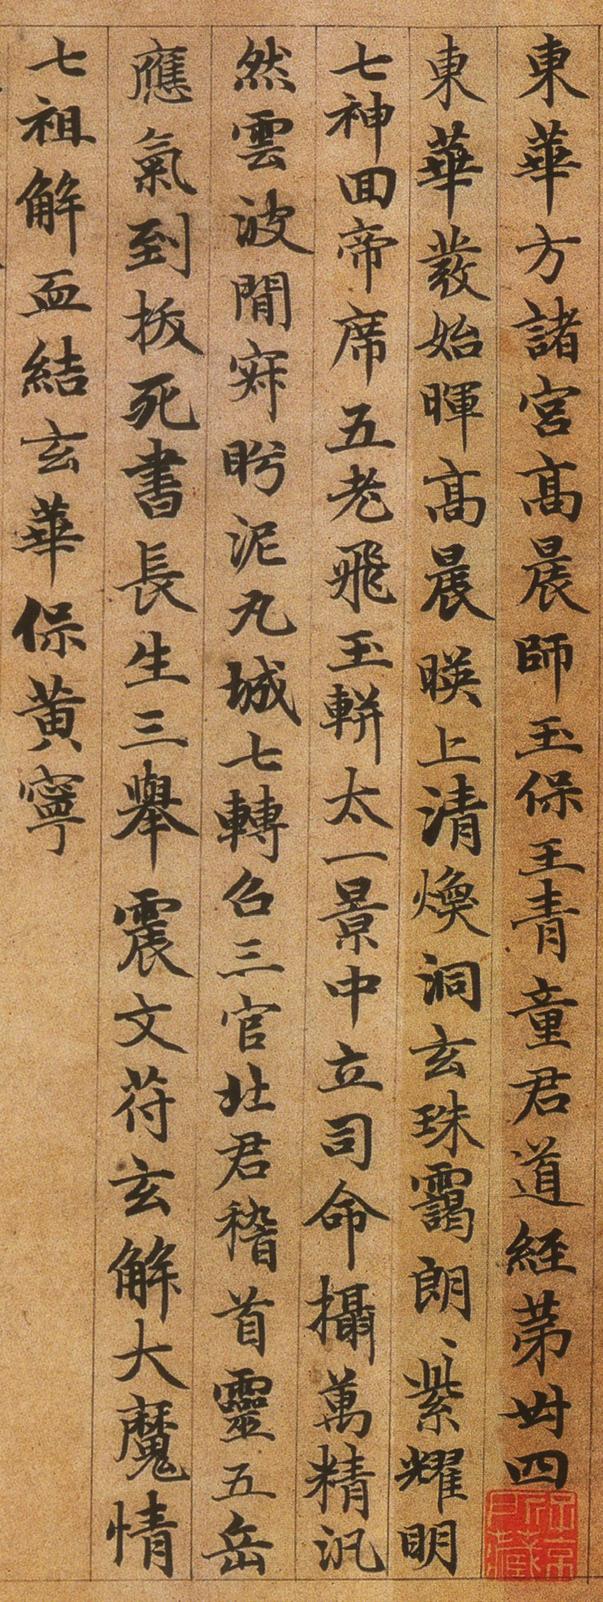 東華方諸宮高晨師玉保王青童君道經第卌四
東華發始暉高晨暎上清煥洞玄珠靄朗紫耀明
七神回帝席五老飛玉軿太一景中立司命攝萬精汎
然雲波閒寂眄泥丸城七轉召三官北君稽首靈五岳
應氣到拔死書長生三舉震文苻玄解大魔情
七祖解血結玄華保黃寧